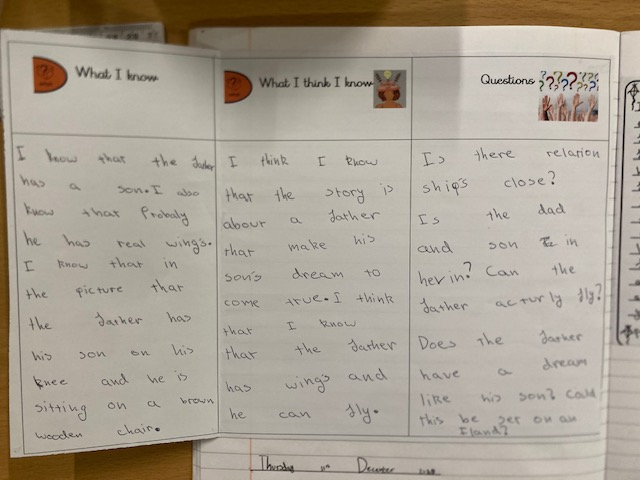 What I know
I know that the father
has a son. I also
know that Probaly
he has real wings.
I know that in
the picture that
the father has
his son on his
knee and he is
sitting on a brown
wooden chair.
What I think I know
I think I know
that the story is
about a father
that make his
son's dream to
come true. I think
that I know
that the father
has wings and
he can fly.
Questions
Is there relation
ship's close?
Is the dad
and son in
hevin? Can the
father acturly fly?
Does the father
have a dream
like his son? Could
this be set on an
Iland?
Thursday 11th December